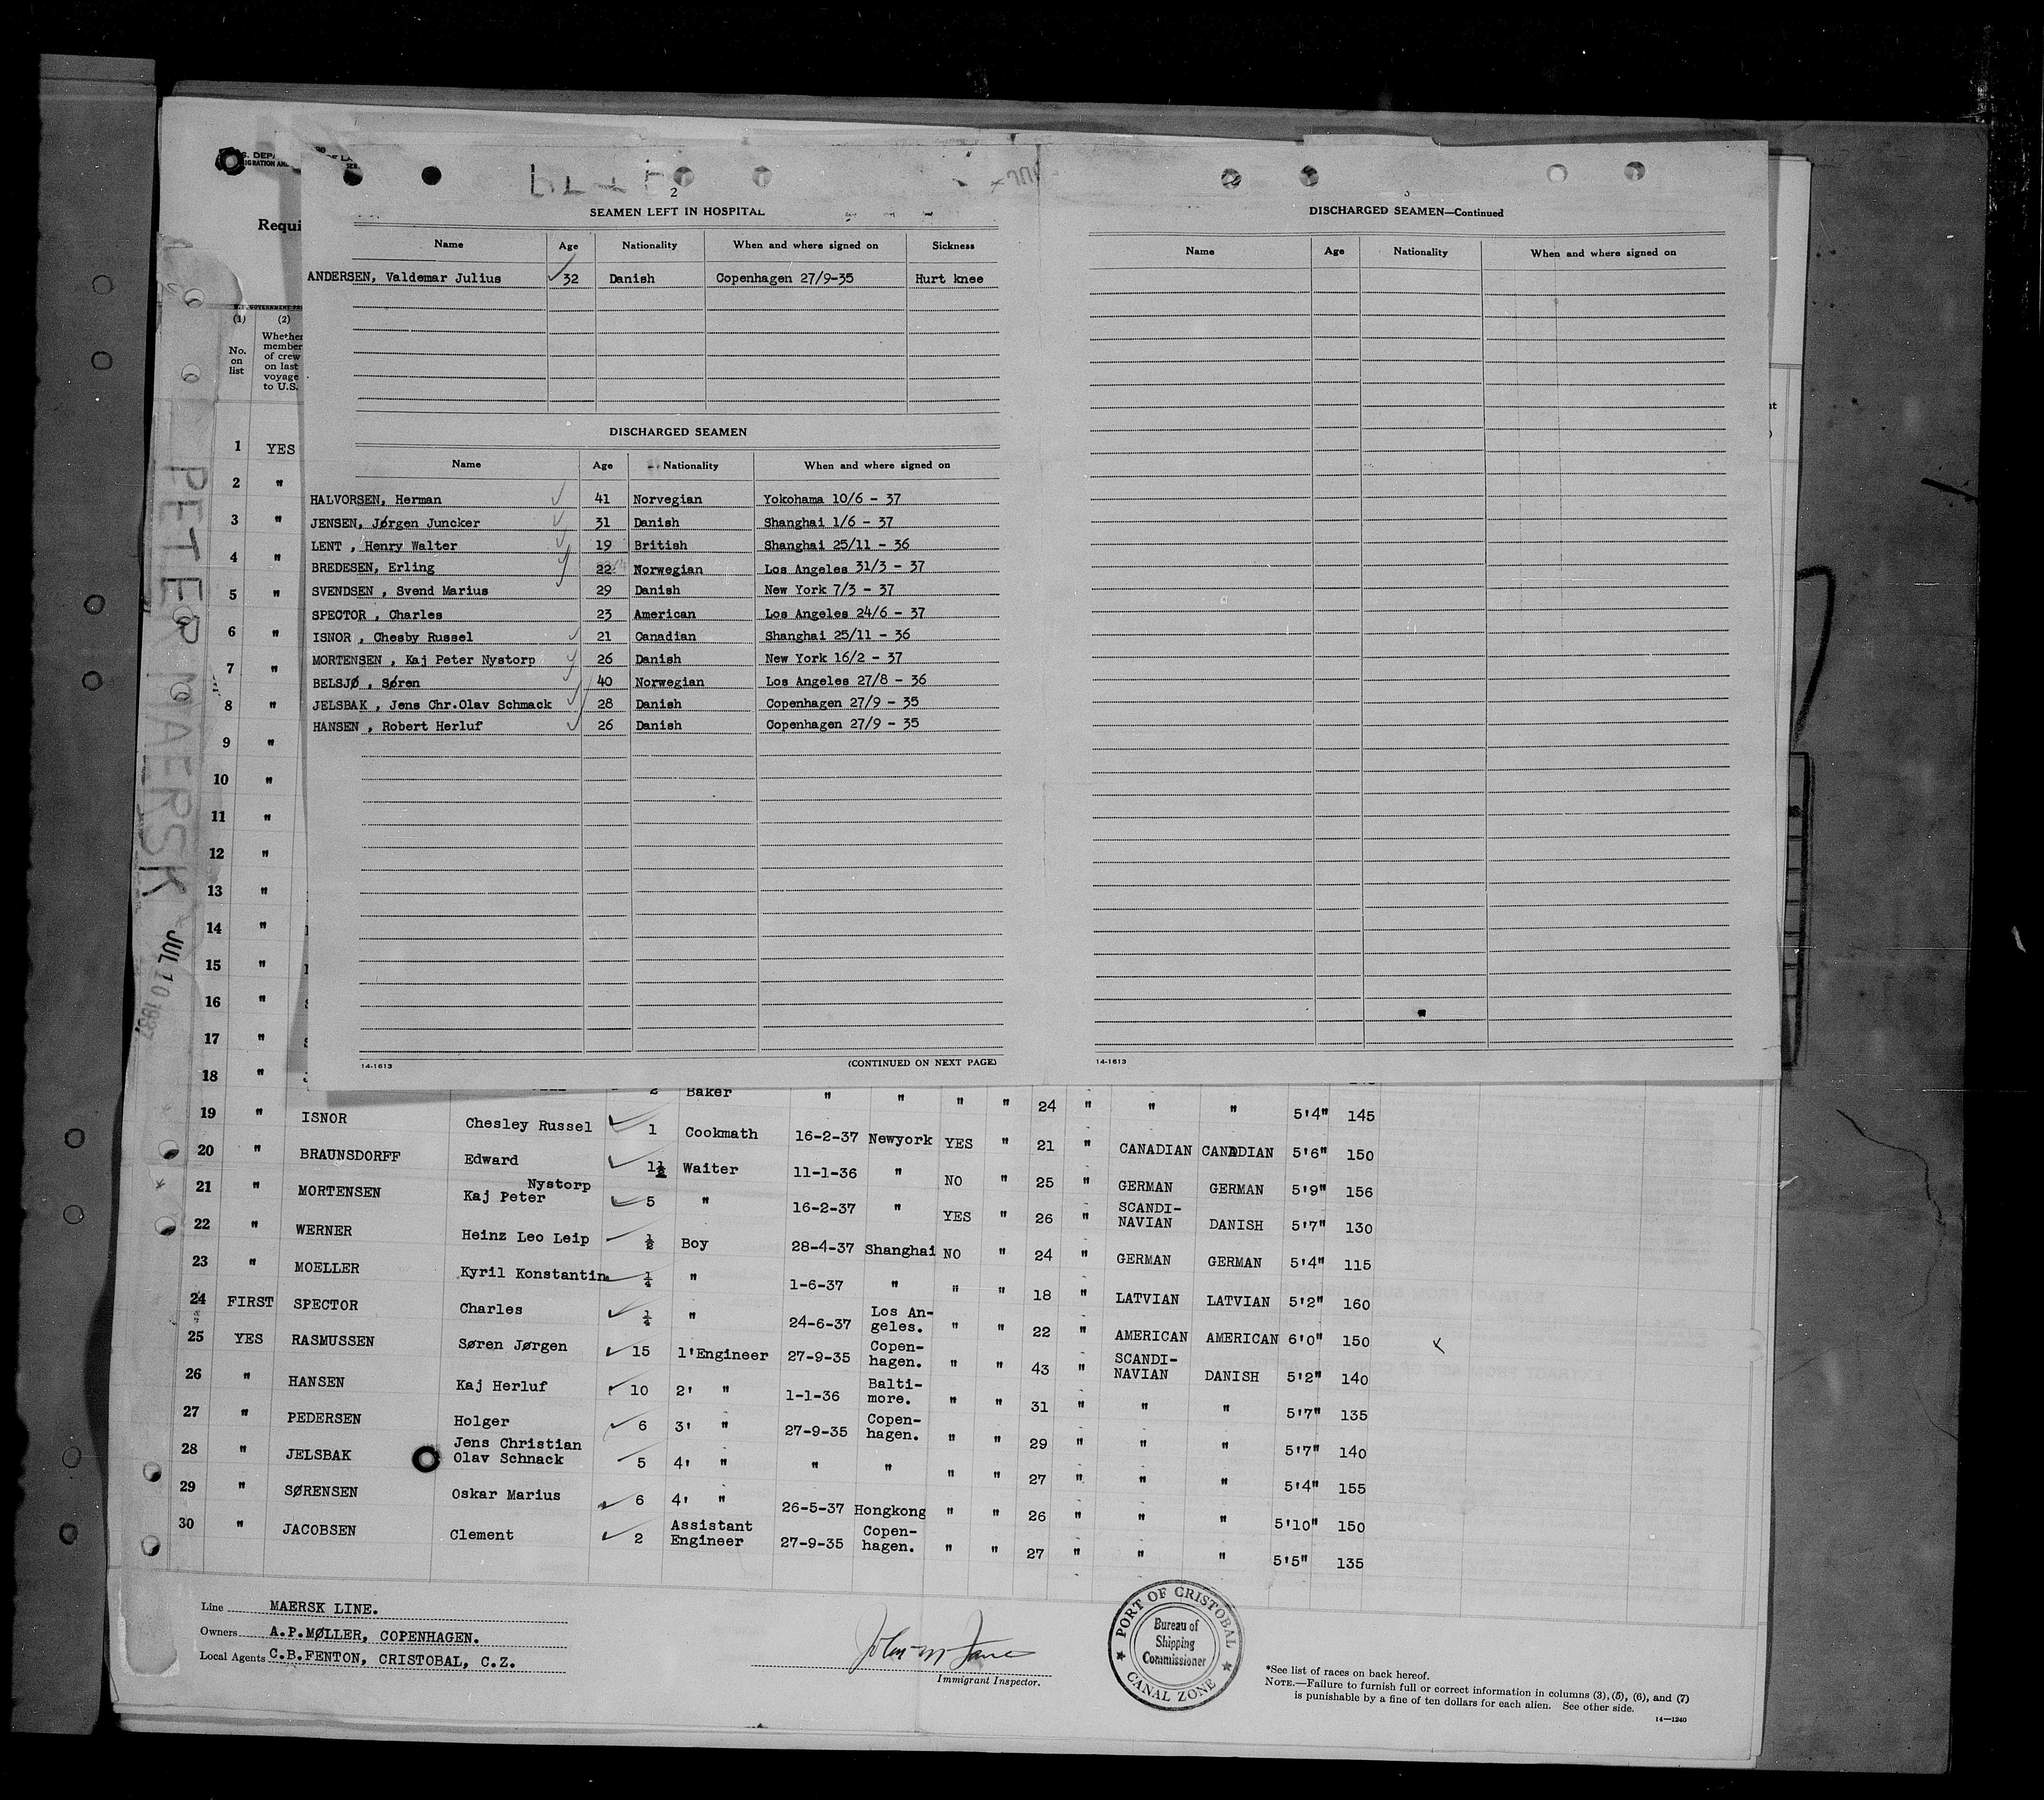 2
SEAMEN LEFT IN HOSPITAL
Name Age Nationality When and where signed on Sickness
ANDERSEN, Valdemar Julius 32 Danish Copenhagen 27/9-35 Hurt knee
DISCHARGED SEAMEN
Name Age Nationality When and where signed on
HALVORSEN, Herman 41 Norvegian Yokohama 10/6 - 37
JENSEN, Jørgen Juncker 31 Danish Shanghai 1/6 - 37
LENT , Henry Walter 19 British Shanghai 25/11 - 36
BREDESEN, Erling 22 Norwegian Los Angeles 31/3 - 37
SVENDSEN , Svend Marius 29 Danish New York 7/3 - 37
SPECTOR , Charles 23 American Los Angeles 24/6 - 37
ISNOR , Chesby Russel 21 Canadian Shanghai 25/11 - 36
MORTENSEN , Kaj Peter Nystorp 26 Danish New York 16/2 - 37
BELSJØ , Søren 40 Norwegian Los Angeles 27/8 - 36
JELSBAK , Jens Chr.Olav Schmack 28 Danish Copenhagen 27/9 - 35
HANSEN , Robert Herluf 26 Danish Copenhagen 27/9 - 35
14-1613
(CONTINUED ON NEXT PAGE)
DISCHARGED SEAMEN—Continued
Name Age Nationality When and where signed on
14-1613
Requi
(1) (2)
No. on list
Whether member of crew on last voyage to U.S.
PETER MAERSK
JUL 10 1937
1 YES
2 "
3 "
4 "
5 "
6 "
7 "
8 "
9 "
10 "
11 "
12 "
13 "
14 "
15 "
16 "
17 "
18 " 2 Baker " " " " 24 " " " 5'4" 145
19 " ISNOR Chesley Russel 1 Cookmath 16-2-37 Newyork YES " 21 " CANADIAN CANADIAN 5'6" 150
20 " BRAUNSDORFF Edward 1½ Waiter 11-1-36 " NO " 25 " GERMAN GERMAN 5'9" 156
21 " MORTENSEN Kaj Peter Nystorp 5 " 16-2-37 " YES " 26 " SCANDI-NAVIAN DANISH 5'7" 130
22 " WERNER Heinz Leo Leip ½ Boy 28-4-37 Shanghai NO " 24 " GERMAN GERMAN 5'4" 115
23 " MOELLER Kyril Konstantin ¼ " 1-6-37 " " " 18 " LATVIAN LATVIAN 5'2" 160
24 FIRST SPECTOR Charles ¼ " 24-6-37 Los An-geles. " " 22 " AMERICAN AMERICAN 6'0" 150
25 YES RASMUSSEN Søren Jørgen 15 1'Engineer 27-9-35 Copen-hagen. " " 43 " SCANDI-NAVIAN DANISH 5'2" 140
26 " HANSEN Kaj Herluf 10 2' " 1-1-36 Balti-more. " " 31 " " " 5'7" 135
27 " PEDERSEN Holger 6 3' " 27-9-35 Copen-hagen. " " 29 " " " 5'7" 140
28 " JELSBAK Jens Christian Olav Schnack 5 4' " " " " " 27 " " " 5'4" 155
29 " SØRENSEN Oskar Marius 6 4' " 26-5-37 Hongkong " " 26 " " " 5'10" 150
30 " JACOBSEN Clement 2 Assistant Engineer 27-9-35 Copen-hagen. " " 27 " " " 5'5" 135
Line MAERSK LINE.
Owners A.P.MØLLER, COPENHAGEN.
Local Agents C.B.FENTON, CRISTOBAL, C.Z.
Immigrant Inspector.
PORT OF CRISTOBAL
Bureau of
Shipping
Commissioner
CANAL ZONE
*See list of races on back hereof.
NOTE.—Failure to furnish full or correct information in columns (3), (5), (6), and (7)
is punishable by a fine of ten dollars for each alien. See other side.
14—1240